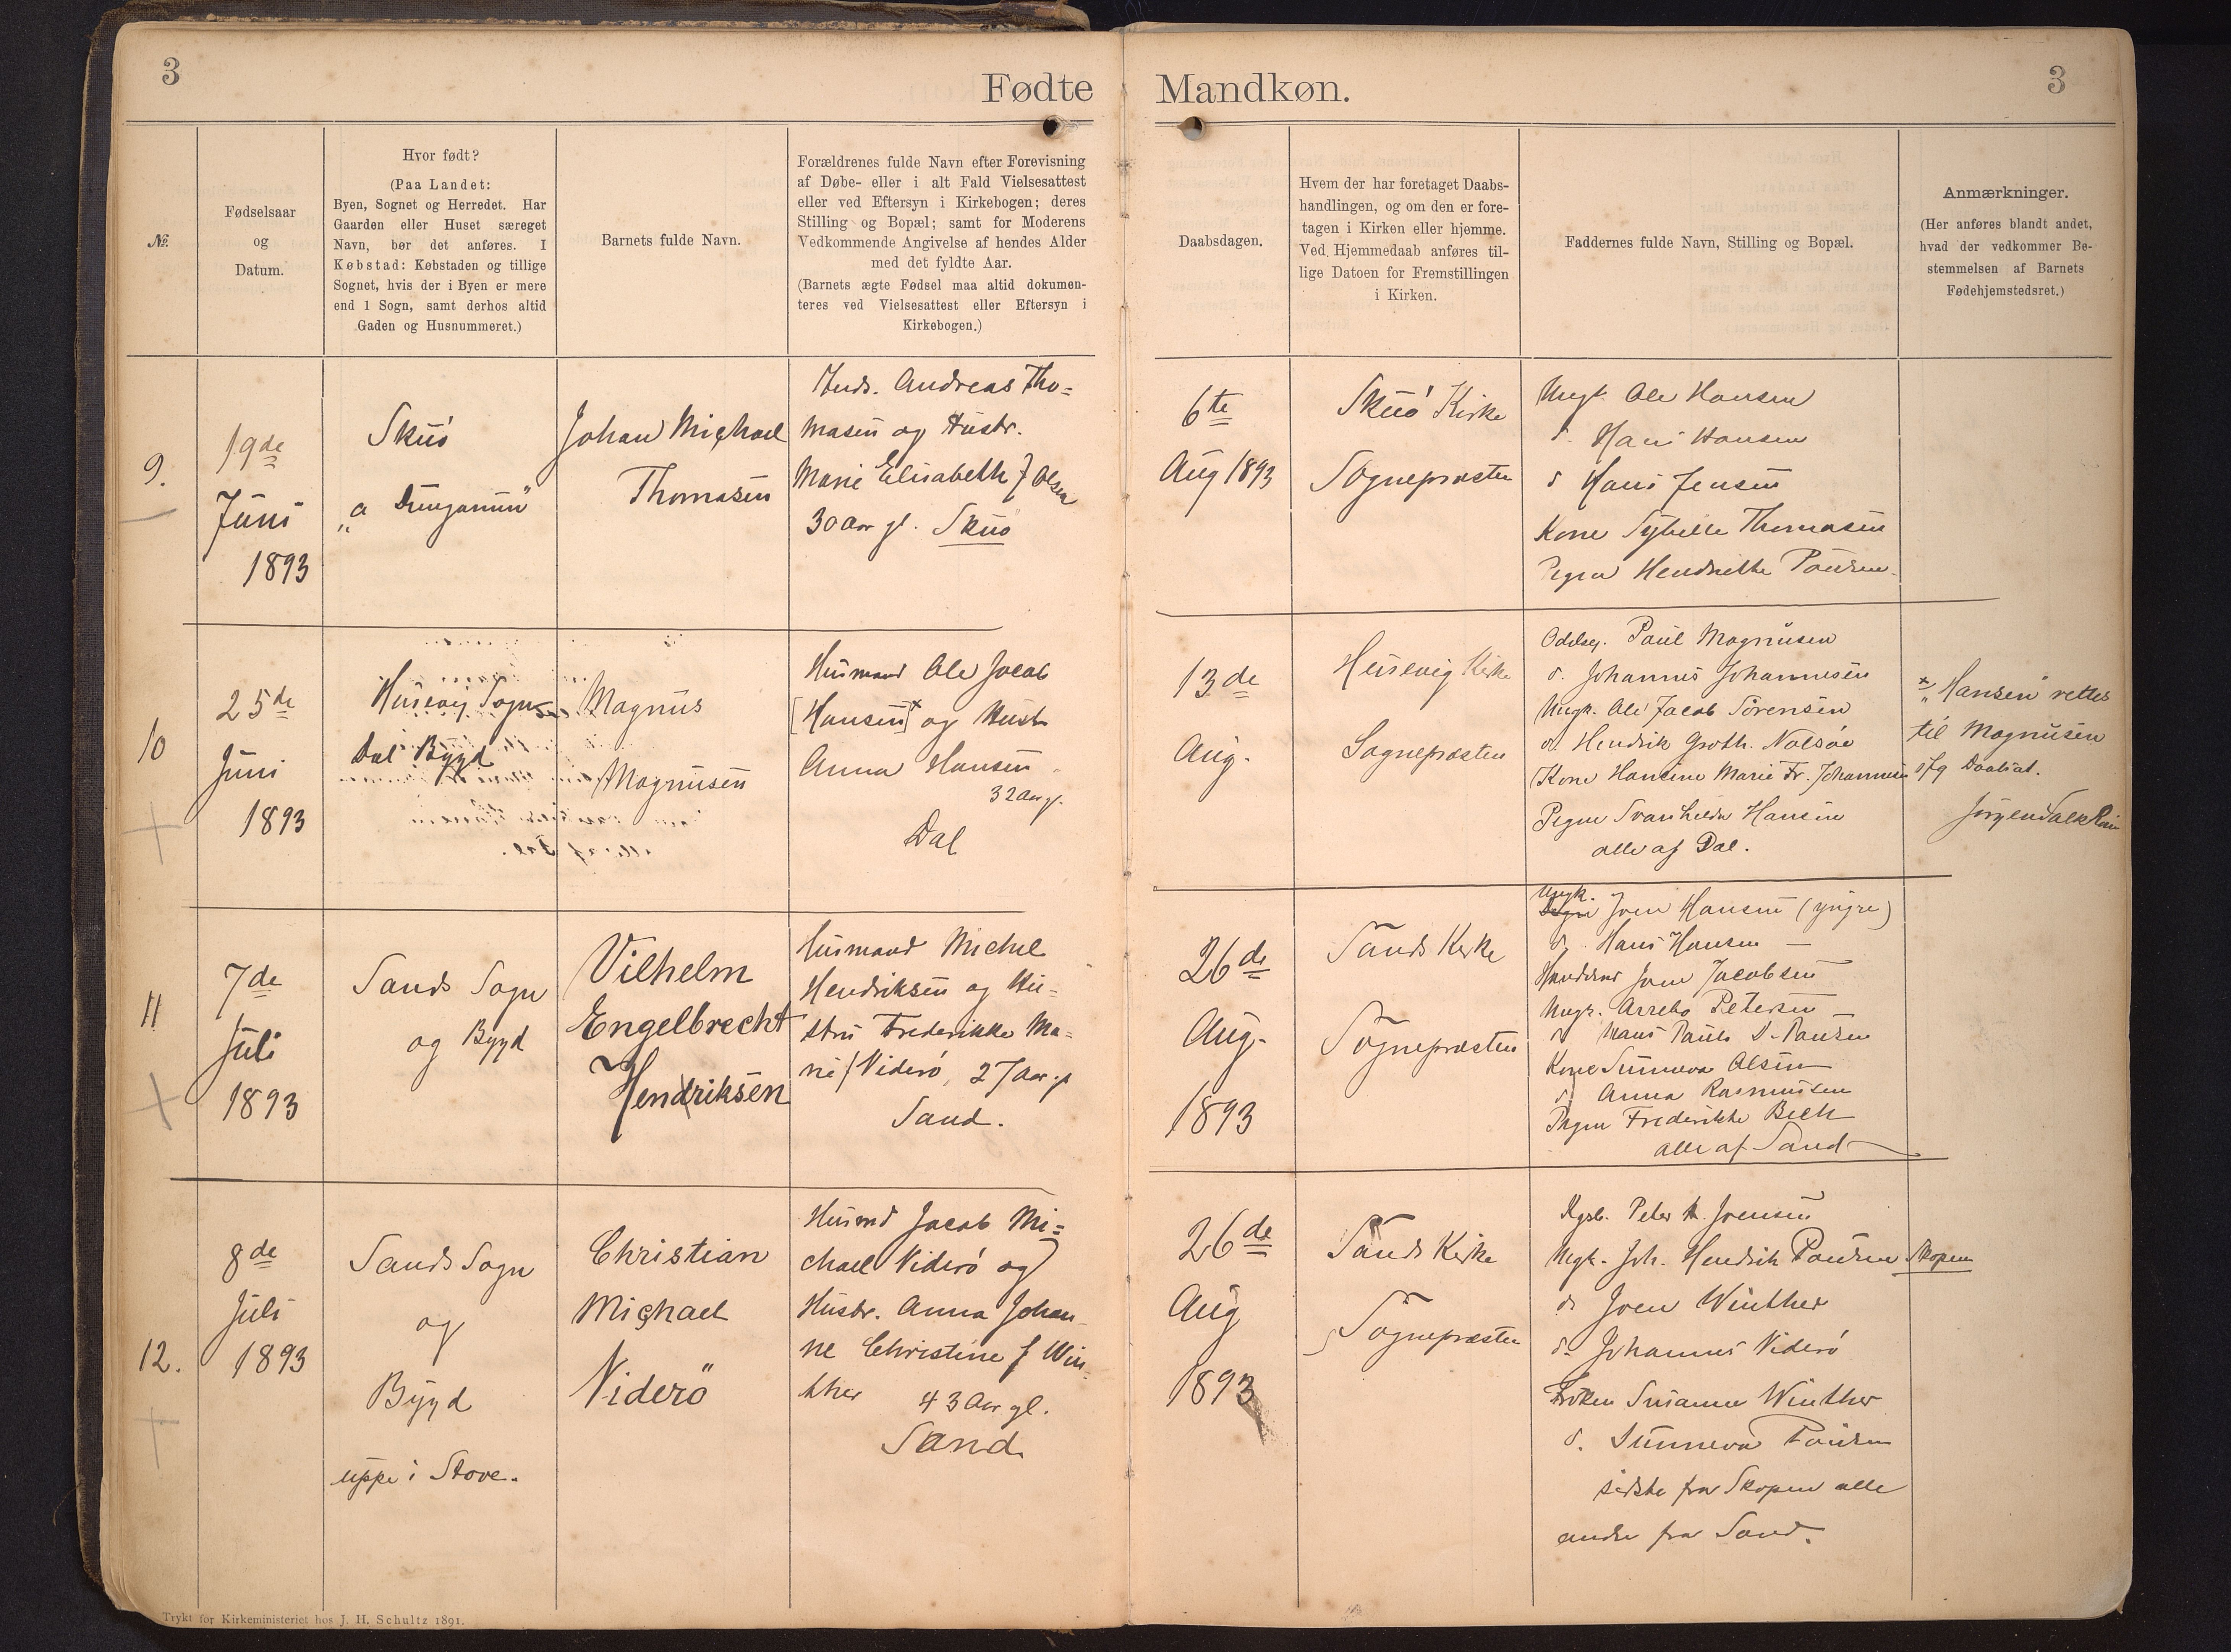 3
Fødte
Mandkøn.
3
№.
Fødselsaar
og
Datum.
Hvor født?
(Paa Landet:
Byen, Sognet og Herredet. Har
Gaarden eller Huset særeget
Navn, bør det anføres. I
Købstad: Købstaden og tillige
Sognet, hvis der i Byen er mere
end 1 Sogn, samt derhos altid
Gaden og Husnummeret.)
Barnets fulde Navn.
Forældrenes fulde Navn efter Forevisning
af Døbe- eller i alt Fald Vielsesattest
eller ved Eftersyn i Kirkebogen; deres
Stilling og Bopæl; samt for Moderens
Vedkommende Angivelse af hendes Alder
med det fyldte Aar.
(Barnets ægte Fødsel maa altid dokumen-
teres ved Vielsesattest eller Eftersyn i
Kirkebogen.)
Daabsdagen.
Hvem der har foretaget Daabs-
handlingen, og om den er fore-
tagen i Kirken eller hjemme.
Ved Hjemmedaab anføres til-
lige Datoen for Fremstillingen
i Kirken.
Faddernes fulde Navn, Stilling og Bopæl.
Anmærkninger.
(Her anføres blandt andet,
hvad der vedkommer Be-
stemmelsen af Barnets
Fødehjemstedsret.)
9.
19de
Juni
1893
Skuö
Johan Michael
Thomasen
Andreas Tho=
masen og Hustr.
Marie Elisabeth f Olsen
30 Aar gl. Skuö
6te
Aug 1893
Skuö Kirke
Sognepræsten
Ungk. Ole Hansen
d. Hans Hansen
d Hans Jensen
Kone Sybille Thomasen
Pigen Hendrikke Poulsen
10
25de
Juni
1893
Husevig Sogn
Dal Bygd
Magnus
Magnusen
Husmand Ole Jacob
[Hansen]x og Hustr
Anna Hansen
32 Aar gl.
Dal
13de
Aug.
Husevig Kirke
Sognepræsten
Odelsb. Paul Magnusen
d. Johannes Johannesen
Ungk. Ole Jacob Sörensen
d. Hendrik Groth. Nolsöe
Kone Hansine Marie Fr. Johannesen
Pigen Svanhilda Hansen
alle af Dal.
x „Hansen" rettes
til Magnusen
Jörgen Falk
11
7de
Juli
1893
Sands Sogn
og Bygd
Vilhelm
Engelbrecht
Hendriksen
Husmand Michel
Hendriksen og Hu=
stru Frederikke Ma=
rie f Viderö, 27 Aar gl
Sand.
26de
Aug.
1893
Sands Kirke
Sognepræsten
Ungk. Joen Hansen (yngre)
d. Hans Hansen
Joen Jacobsen
Ungk. Arrebo Petersen
d Hans Pauli D.
Kone Sunneva Olsen
d. Anna Rasmussen
Pigen Frederikke Bech
alle af Sand
12.
8de
Juli
1893
Sands Sogn
og
Bygd
uppe i Stove.
Christian
Michael
Viderö
Husmd Jacob Mi=
chael Viderö og
Hustr. Anna Johan
ne Christine f Win
ther 43 Aar gl.
Sand
26de
Aug
1893
Sands Kirke
Sognepræsten
Kgsb. Peter Joensen
Ungk. Joh. Hendrik Poulsen Skopen
d. Joen Winther
d. Johannes Viderö
Fröken Susanne Winther
d. Sunneva Poulsen
sidste fra Skopen alle
andre fra Sand.
Trykt for Kirkeministeriet hos J. H. Schultz 1891.